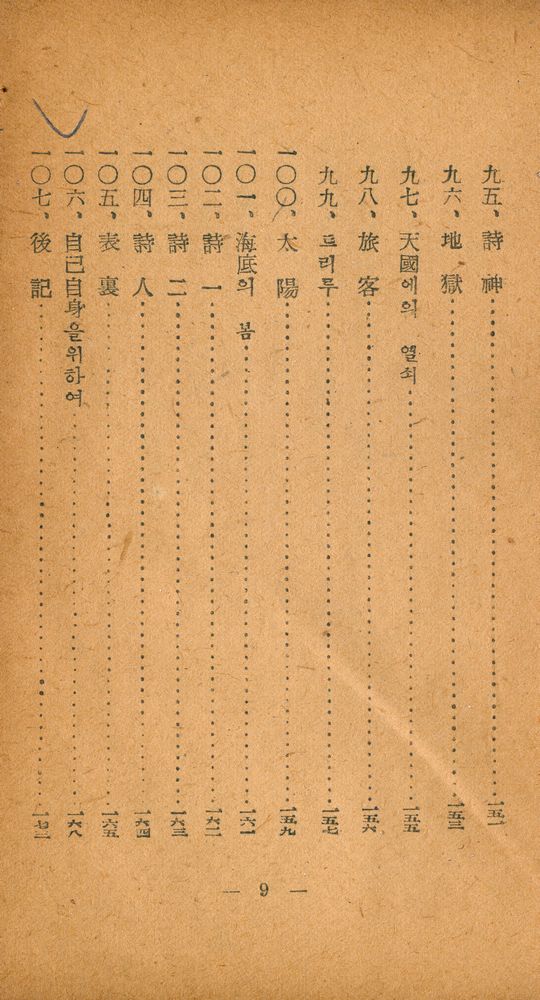 九五、詩神 一五一
九六、地獄 一五三
九七、天國에의 열쇠 一五五
九八、旅客 一五六
九九、프리무 一五七
一〇〇、太陽 一五九
一〇一、海底의 봄 一六一
一〇二、詩一 一六二
一〇三、詩二 一六三
一〇四、詩人 一六四
一〇五、表裏 一六五
一〇六、自己自身을위하여 一六八
一〇七、後記
— 9 —